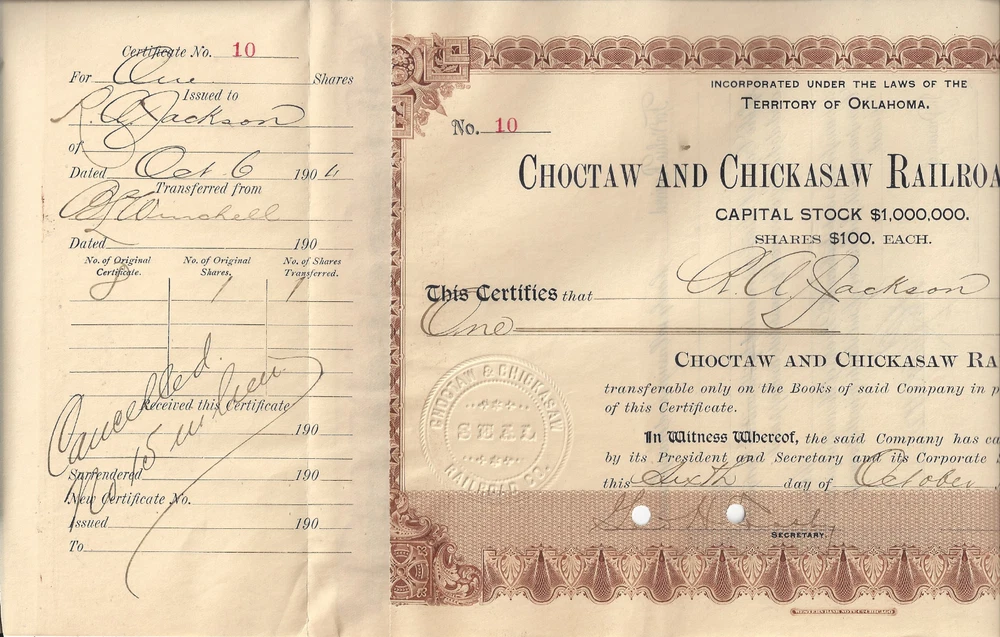 Certificate No. 10
For One Shares
Issued to
R. A. Jackson
of
Dated Oct 6 1904
Transferred from
Winchell
Dated 190
No. of Original Certificate. No. of Original Shares. No. of Shares Transferred.
8 1 1
Cancelled
Received this Certificate
190
Surrendered 190
New Certificate No.
Issued 190
To
INCORPORATED UNDER THE LAWS OF THE
TERRITORY OF OKLAHOMA.
No. 10
CHOCTAW AND CHICKASAW RAILROA
CAPITAL STOCK $1,000,000.
SHARES $100. EACH.
This Certifies that R. A. Jackson
One
CHOCTAW AND CHICKASAW RA
transferable only on the Books of said Company in p
of this Certificate.
In Witness Whereof, the said Company has ca
by its President and Secretary and its Corporate
this Sixth day of October
SECRETARY.
CHOCTAW & CHICKASAW
SEAL
RAILROAD CO.
WESTERN BANK NOTE CO. CHICAGO